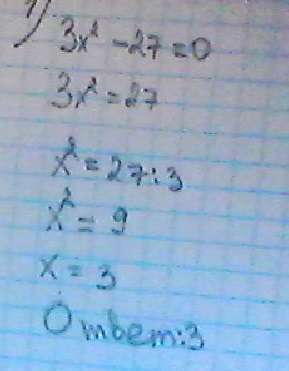 1)
3x² - 27 = 0
3x² = 27
x² = 27:3
x² = 9
x = 3
Ответ: 3